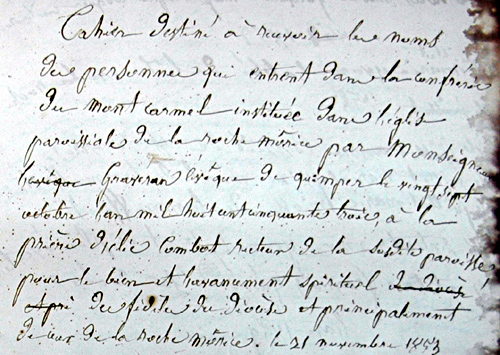 Cahier destiné à recevoir les noms
des personnes qui entrent dans la confrérie
du mont carmel instituée dans l'église
paroissiale de la roche mórice par Monseigneur
graveran évêque de quimper le vingt sept
octobre l'an mil huit cent cinquante trois, à la
prière d'élie Combot recteur de la susdite paroisse
pour le bien et l'avancement spirituel du diocèse
des fidèles du diocèse et principalement
de ceux de la roche mórice. le 21 novembre 1853